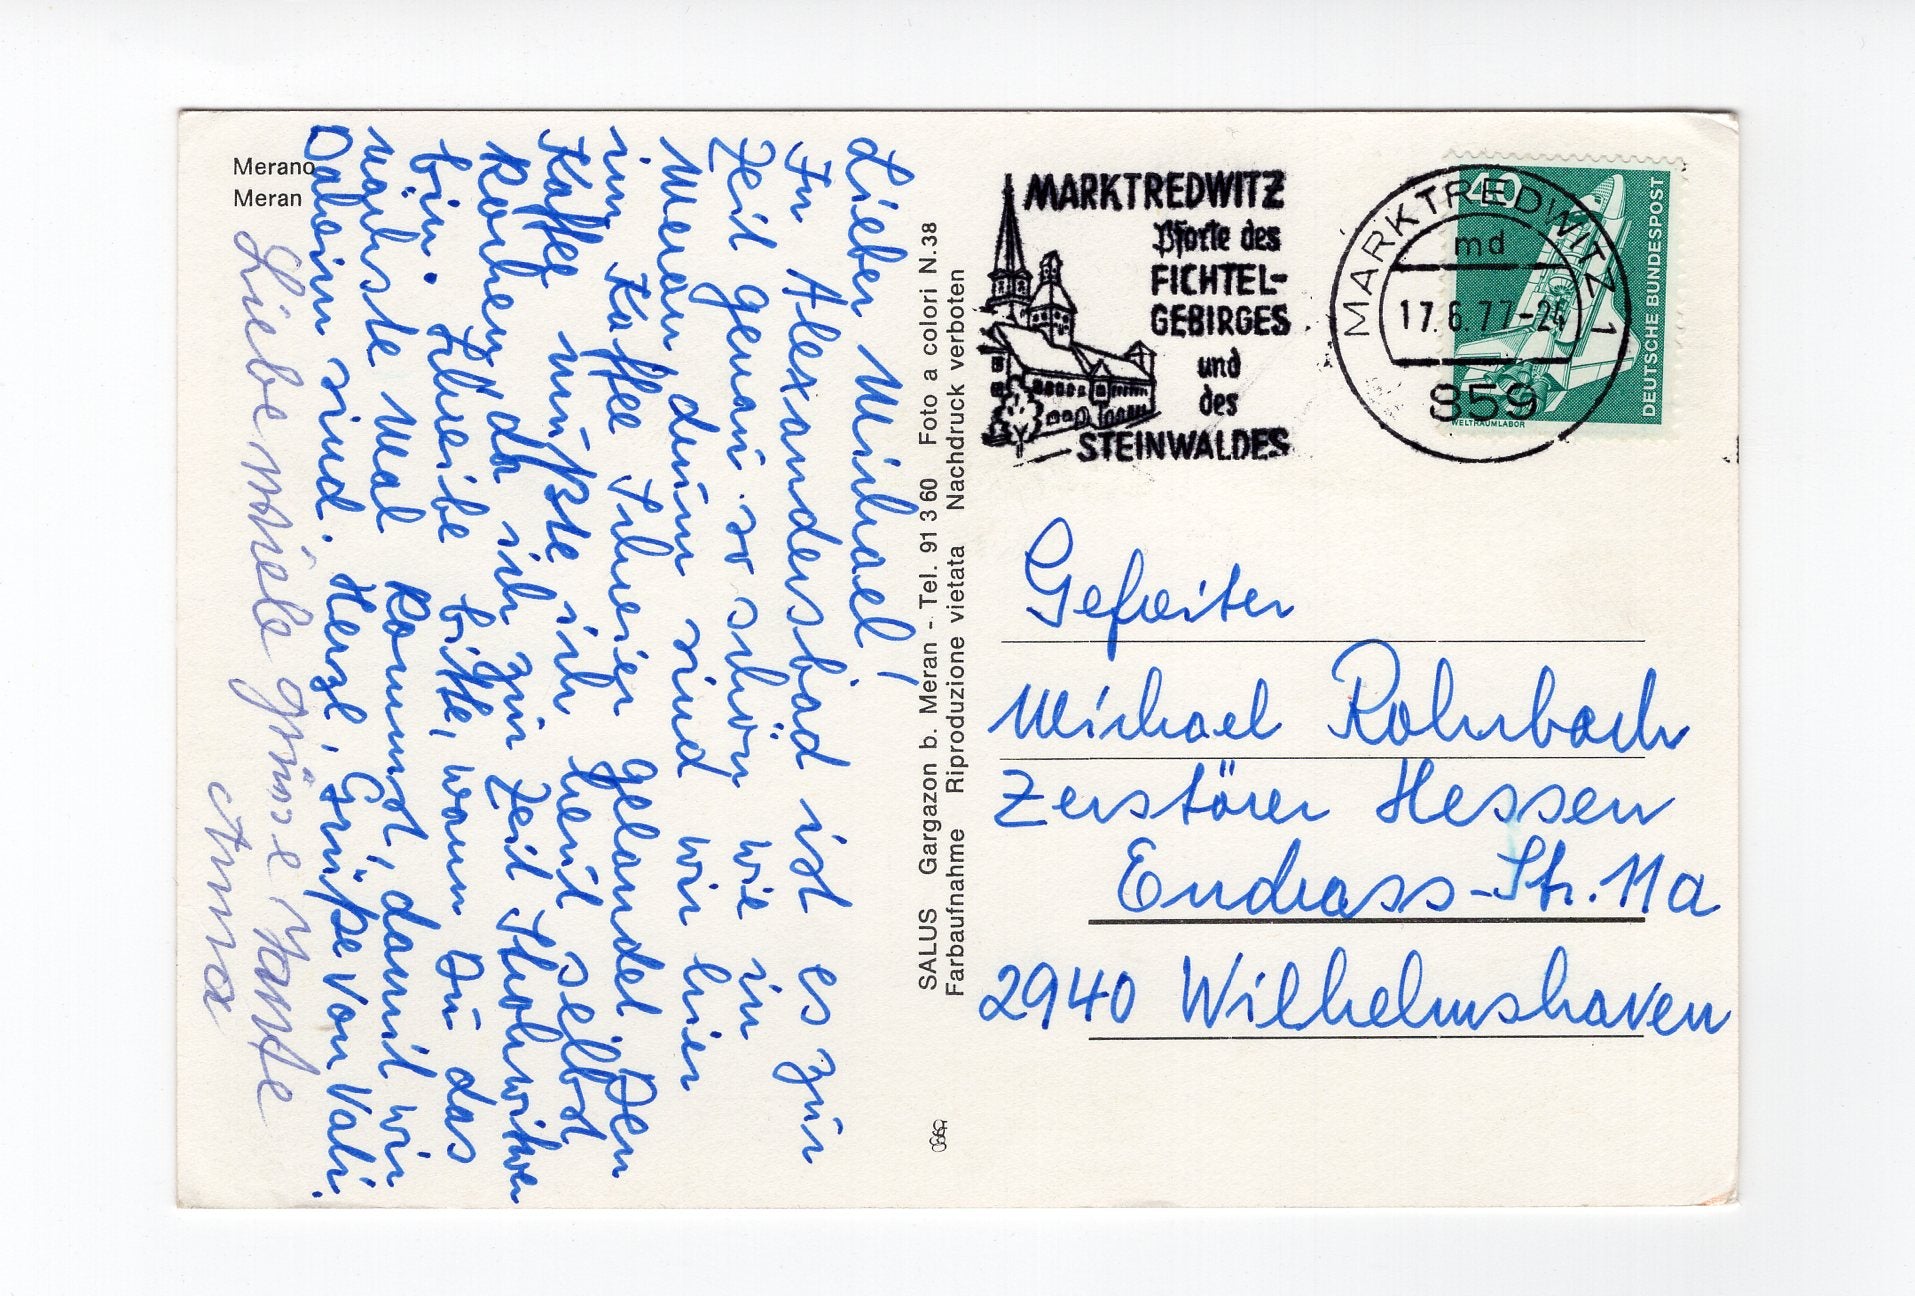 Merano
Meran
Lieber Michael!
In Alexandersbad ist es zur
Zeit genau so schön wie in
Meran drum sind wir hier
im Kaffee Schweier gelandet. Den
Kaffee mußte ich heut selbst
kochen, da ich zur Zeit Strohwitwer
bin. Schreibe bitte, wann Du das
nächste Mal kommst, damit wir
Daheim sind. Herzl. Grüße von Vati.
Liebe viele grüsse Tante
Anna
SALUS Gargazon b. Meran - Tel. 91 3 60 Foto a colori N.38
Farbaufnahme Riproduzione vietata Nachdruck verboten
MARKTREDWITZ
Pforte des
FICHTEL-
GEBIRGES
und
des
STEINWALDES
MARKTREDWITZ 1
md
17.6.77-24
859
40
DEUTSCHE BUNDESPOST
WELTRAUMLABOR
Gefreiter
Michael Rohrbach
Zerstörer Hessen
Endrass-Str. 11a
2940 Wilhelmshaven